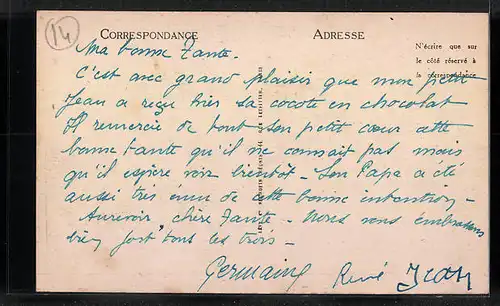 14
CORRESPONDANCE
ADRESSE
N'écrire que sur
le côté réservé à
la correspondance
Ma bonne Tante.
C'est avec grand plaisir que mon petit
Jean a reçu hier sa cocote en chocolat
Il remercie de tout son petit cœur cette
bonne tante qu'il ne connait pas mais
qu'il espère voir bientôt. Son Papa a été
aussi très ému de cette bonne intention.
Aurevoir chère Tante. Nous vous embrassons
bien fort tous les trois.
Germaine René Jean